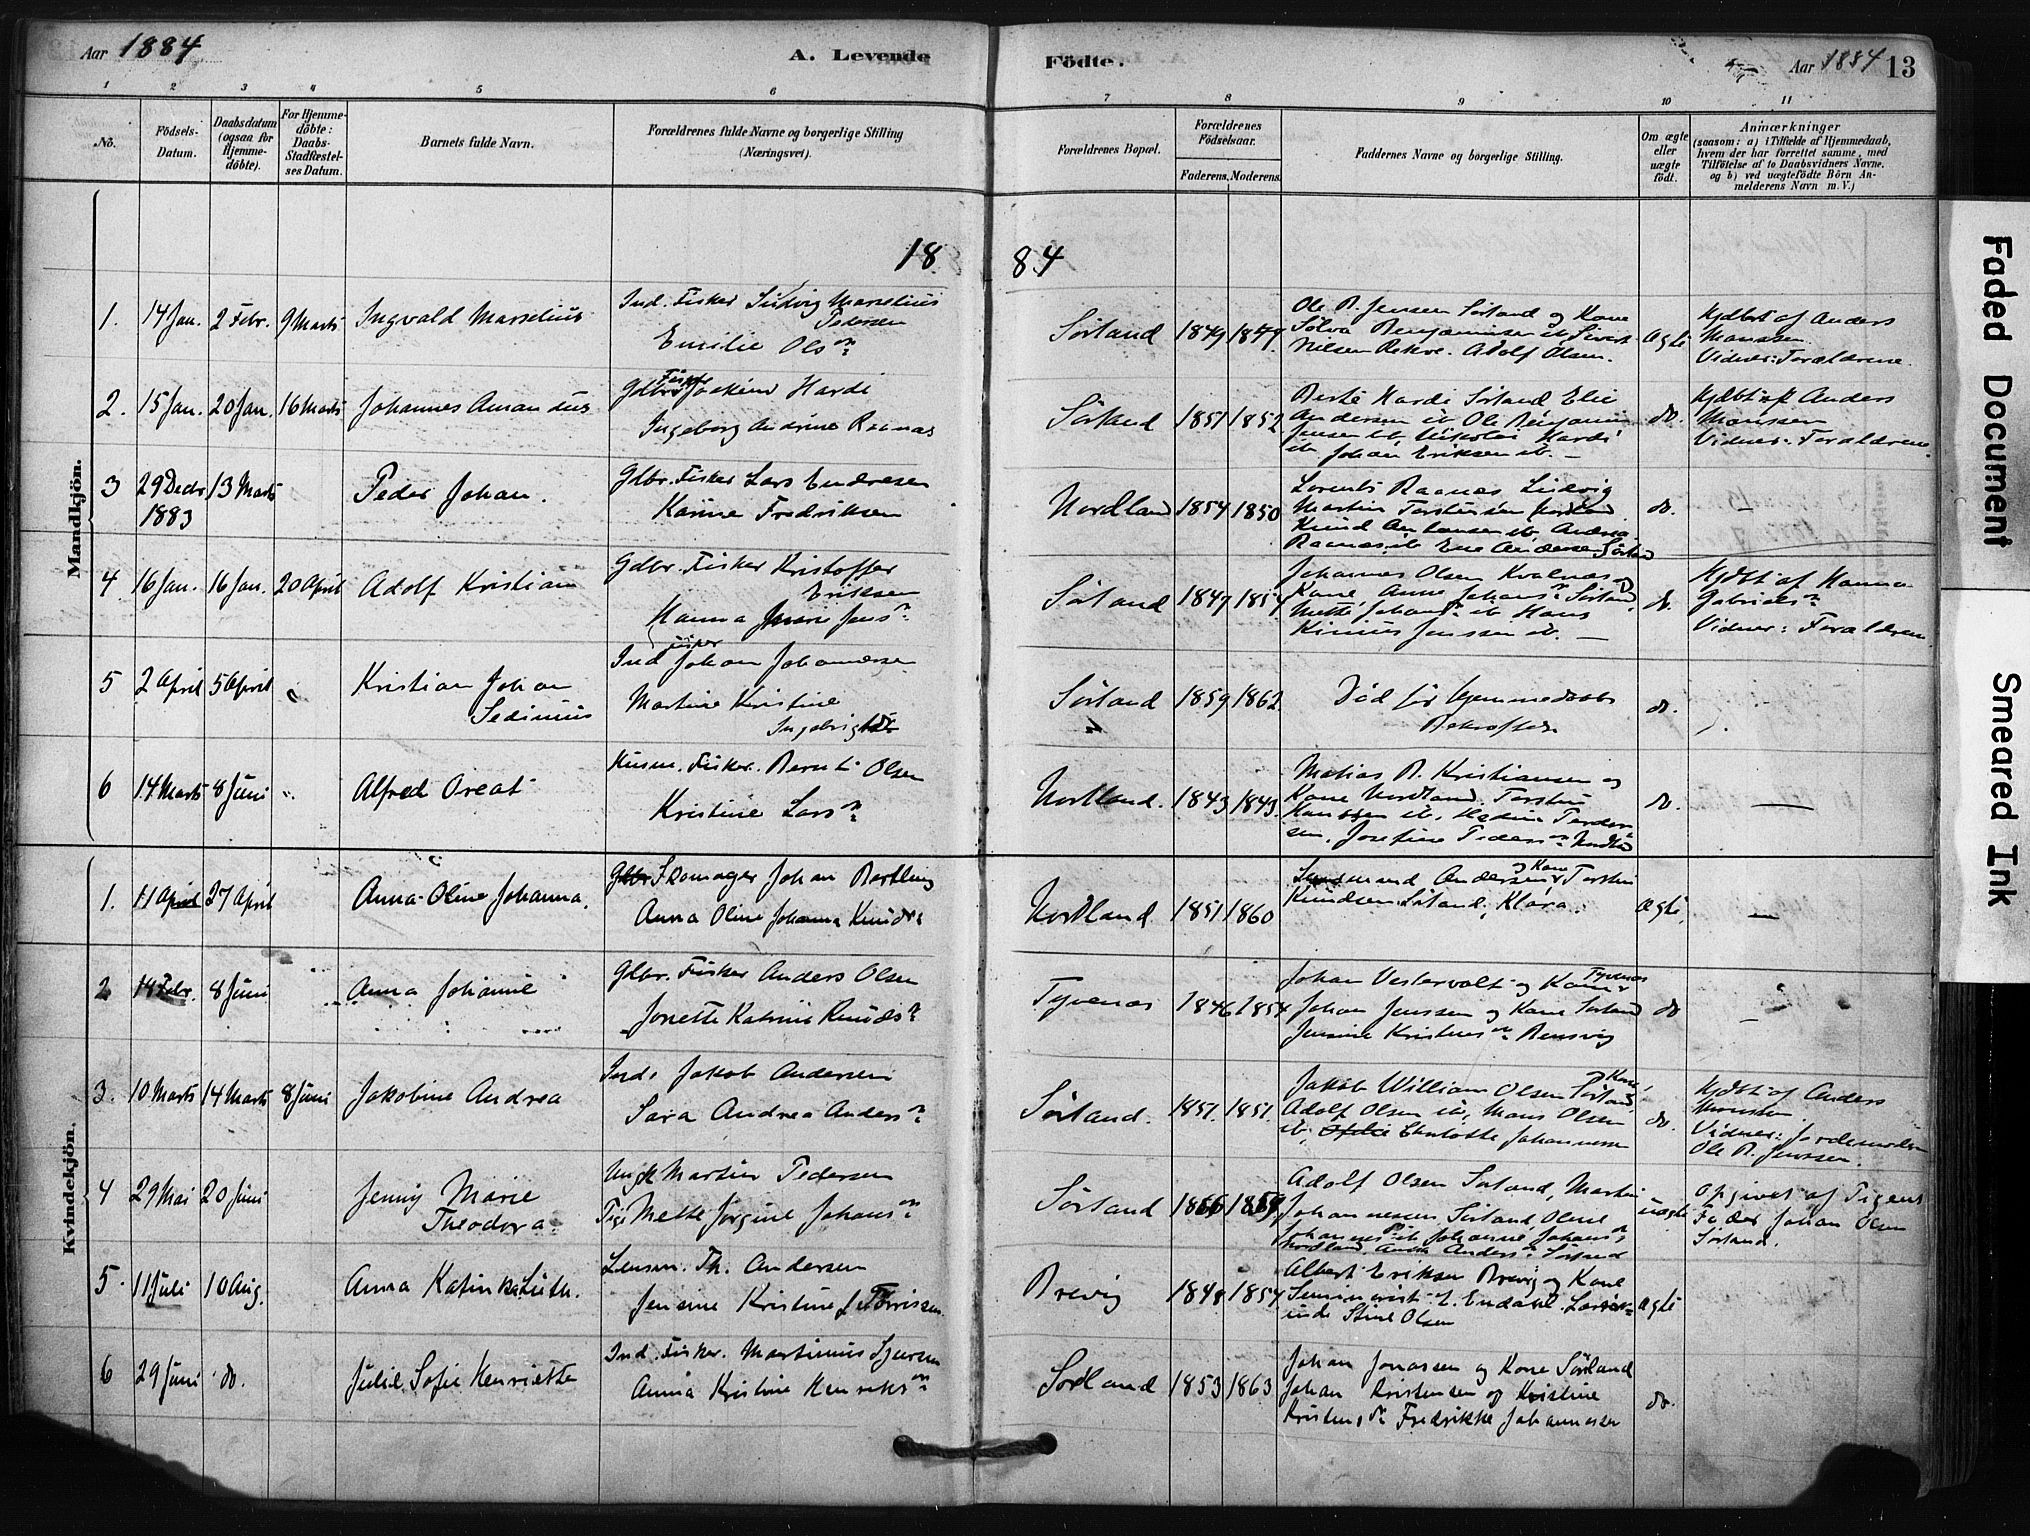 Aar 1884
A. Levende
Födte.
Aar 1884 13
1 2 3 4 5 6 7 8 9 10 11
No.
Födsels-
Datum.
Daabsdatum
(ogsaa for
Hjemme-
döbte).
For Hjemme-
döbte:
Daabs-
Stadfæstel-
ses Datum.
Barnets fulde Navn.
Forældrenes fulde Navne og borgerlige Stilling
(Næringsvei).
Forældrenes Bopæl.
Forældrenes
Födselsaar.
Faderens. Moderens.
Faddernes Navne og borgerlige Stilling.
Om ægte
eller
uægte
födt.
Anmærkninger
(saasom: a) i Tilfælde af Hjemmedaab,
hvem der har forrettet samme, med
Tilföielse af to Daabsvidners Navne.
og b) ved uægtefödte Börn An-
melderens Navn m. V.)
18 84
Mandkjön.
1. 14 Jan. 2 Febr. 9 Marts Ingvald Marselius
Ind. Fisker Ludvig Marselius
Pedersen
Emilie Olsn
Sörland 1849
Ole B. Jensen Sörland og Kone
Sölva Benjaminsen ib. Sivert
Nilsen Rekve. Adolf Olsen.
Ægte
Hjdbt af Anders
Monssen.
Vidner: Forældrene.
2. 15 Jan. 20 Jan. 16 Marts Johannes Amandus
Gdbr Fisker Joakim Hardi
Ingeborg Andrine Raanas
Sörland 1851 1852
Berte Hardi Sörland Elie
Andersen ib Ole Benjamin
Jensen ib. Nikolai Hardi
ib. Johan Eriksen ib. —
do.
Hjdbt af Anders
Monssen
Vidner: Forældrene.
3 29 Decbr 13 Marts Peder Johan.
1883
Gdbr. Fisker Lars Endresen
Karine Fredriksen
Nordland 1854 1850
Lorents Raanas Ludvig
Martin Torstensen
Knud
do. —
4 16 Jan. 16 Jan. 20 April Adolf Kristian
Gdbr. Fisker Kristoffer
Eriksen
Hanna Marie Jensn
Sörland 1847
Johannes Olsen Kvalnes og
Kone, Anne Johansn Sörland,
Mette Johansn ib Hans
Jenssen ib. —
do.
Hjdbt af Hanna
Gabrielsn
Vidner: Forældrene
5 2 April 5 April Kristian Johan
Sedinius
Ind Fisker Johan Johannesen
Martine Kristine
Sörland 1859 1862.
Död för Hjemmedaabs
Bekræftelse
do.
6 14 Marts 8 Juni Alfred Areat
Husm. Fisker. Bernt Olsen
Kristine Larsn
Nordland. 1843 1843.
Matias B. Kristiansen og
Kone Nordland. Torsten
Hanssen ib.
Josefine Pedersn Nordland
do. —
Kvindekjön.
1. 11 April 27 April Anna Oline Johanna.
Skomager Johan Bertling
Anna Oline Johanna Knuds
Nordland 1851 1860
Andersen og Kone Torsten
Knudsen Sörland, Klara.
Ægte. —
2 18 Febr. 8 Juni Anna Johanne
Gdbr. Fisker Anders Olsen
Jonette Katrine Knudsn
Tyvenæs 1846 1854
Johan Vestervolt og Kone Tyvenæs
Johan Jenssen og Kone Sörland
Jensine Kristensn Rensvig
do —
3. 10 Marts 14 Marts 8 Juni Jakobine Andrea
Ind. Jakob Andersen
Sara Andrea Andersn
Sörland. 1851. 1851.
Jakob William Olsen og Kone, Sörland,
Adolf Olsen ib, Mons Olsen
ib, Charlotte Johannessen
do.
Hjdbt af Anders
Monssen
Vidner: Jordemoder
Ole B. Jenssen.
4 29 Mai 20 Juni Jenny Marie
Theodora.
Ungk Martin Pedersen
Pige Mette Jörgine Johansn
Sörland 1866 1859
Adolf Olsen Sörland, Martin
Johannessen Sörland, Oline
Johannesn ib Johanne Johansn
Nordland Anna Andersn Sörland
uægte
Opgivet af Pigens
Fader Johan Olsen
Sörland.
5. 11 Juli 10 Aug. Anna Katinka Luth.
Lensm. Th. Andersen
Jensine Kristine f. Törrissen
Brevig 1848 1854
Albert Eriksen Brevig og Kone
Seminarist E. Endahl.
Stine Olsen
ægte
6 29 Juni do. Julie Sofie Henriette
Ind. Fisker. Martinius Sjursen
Anna Kristine Henriksn
Sörland 1853 1863
Johan Jonassen og Kone Sörland
Johan Kristensen og Kristine
Kristens dn Fredrikke Johannessen
do.
Faded Document
Smeared Ink